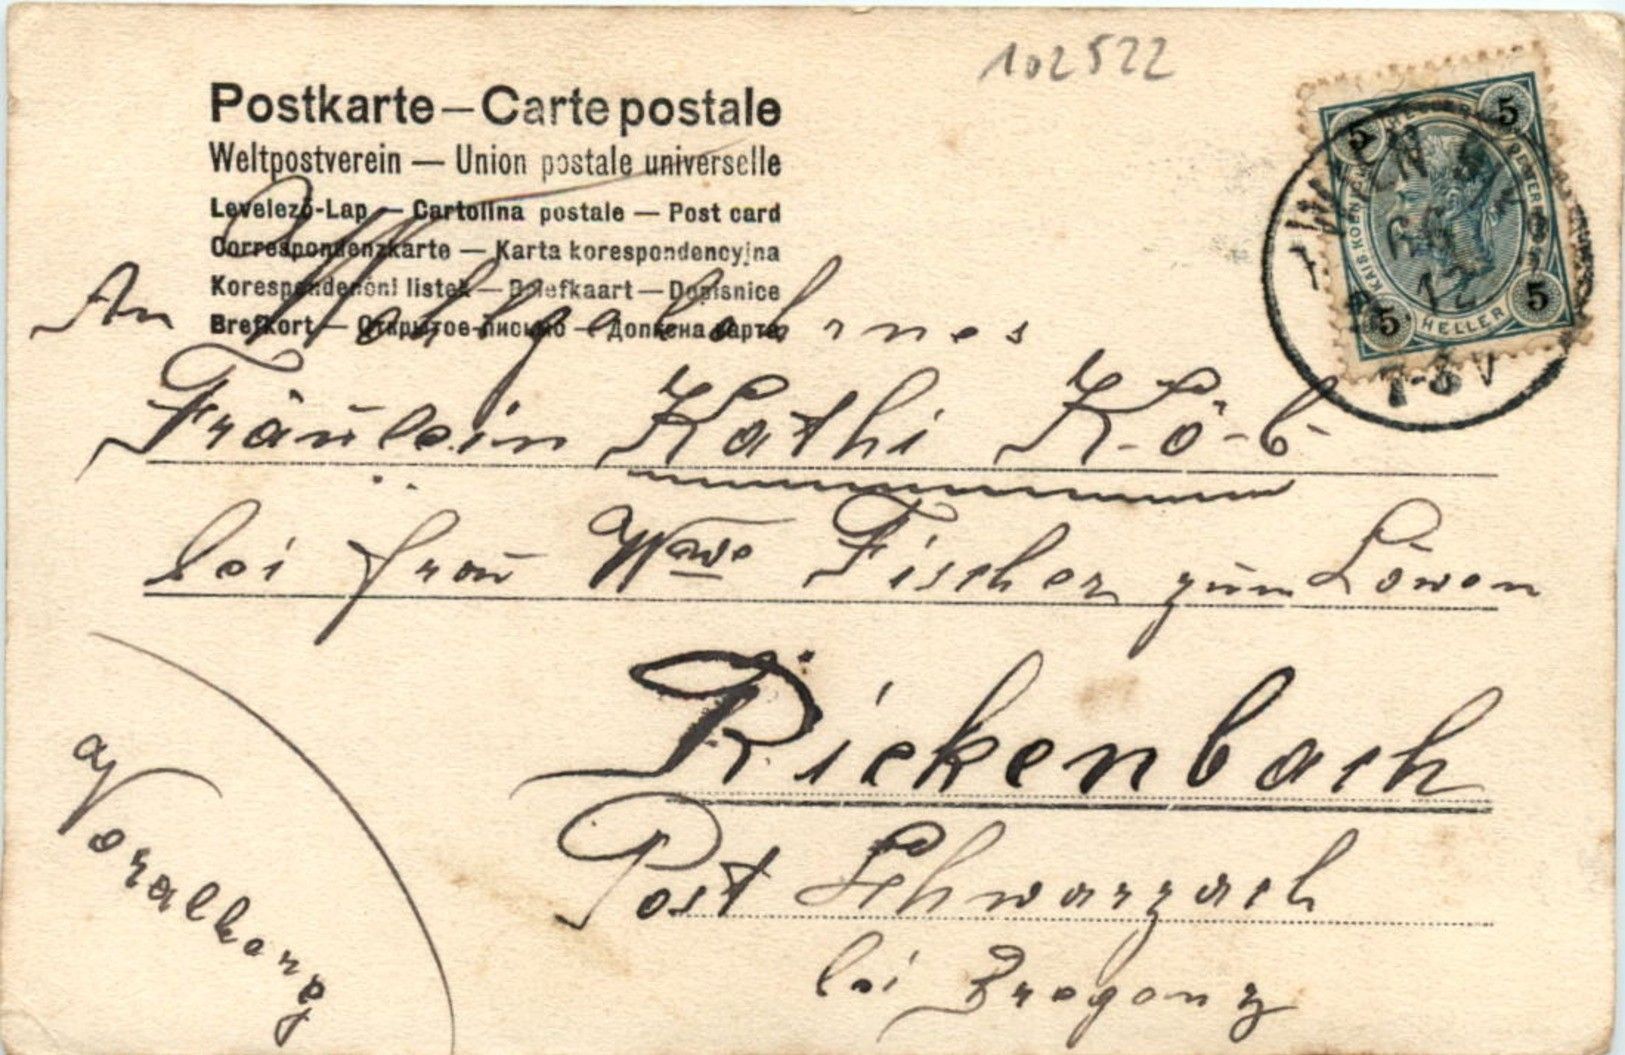 102522
Postkarte — Carte postale
Weltpostverein — Union postale universelle
Levelező-Lap — Cartolina postale — Post card
Correspondenzkarte — Karta korespondencyjna
Korespondenční listek — Briefkaart — Dopisnice
Brefkort — Открытое письмо — Дописна карта
5 5
5 5
HELLER
WIEN
12
7-8 V
An Wohlgebohrnes
Fräulein Kathi Köb
bei Frau Wwe Fischer zum Löwen
Rickenbach
Post Schwarzach
bei Bregenz
Voralberg